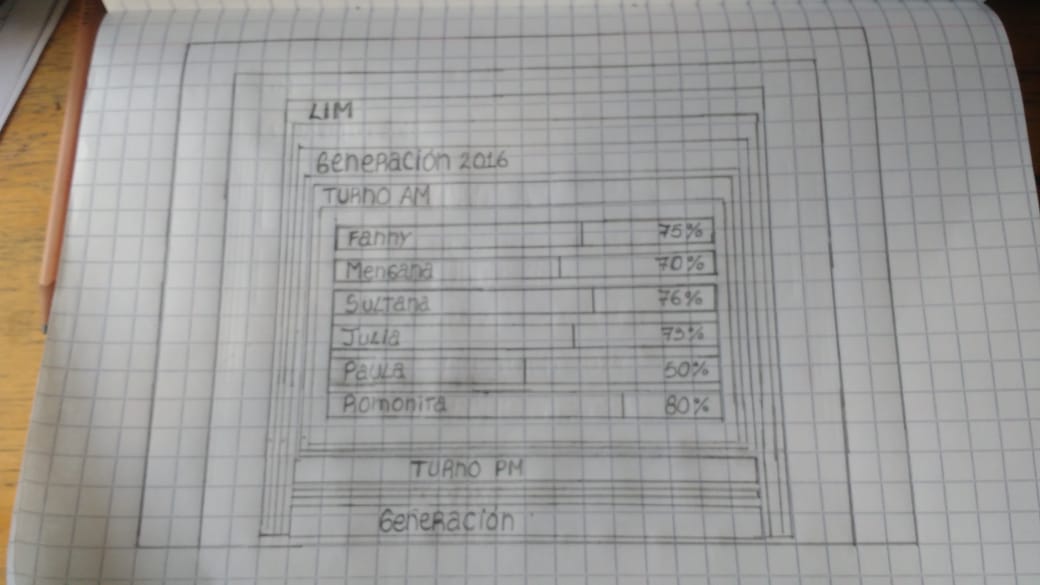 LIM
Generación 2016
TURNO AM
Fanny 75%
Mengana 70%
Sultana 76%
Julia 73%
Paula 50%
Romonita 80%
TURNO PM
Generación